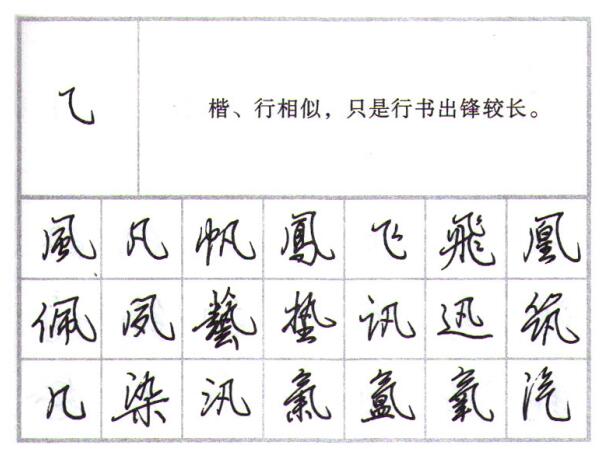 乙 楷、行相似，只是行书出锋较长。
風 凡 帆 鳳 飞 飛 凰
佩 夙 藝 垫 讯 迅 筑
几 染 汛 氣 氲 氧 汽